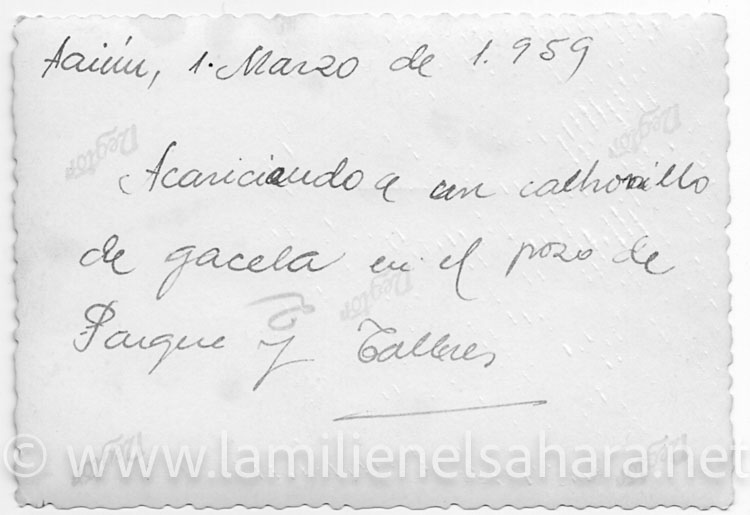 Aaiún, 1. Marzo de 1.959
Acariciando a un cachorillo
de gacela en el pozo de
Parque y Talleres
© www.lamilienelsahara.net
Negtor
Negtor
Negtor
Negtor
Negtor